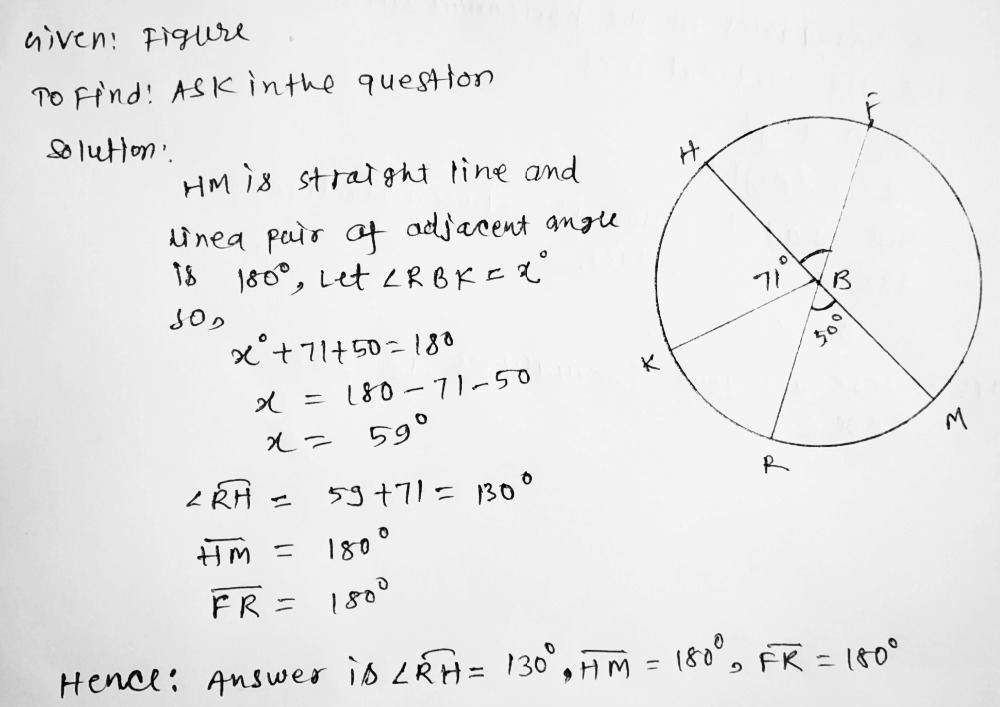 Given: Figure
To Find: ASK in the question
Solution:
HM is straight line and
linea pair of adjacent angle
is 180°, Let ∠RBK = x°
so,
x° + 71 + 50 = 180
x = 180 - 71 - 50
x = 59°
∠R͡H = 59 + 71 = 130°
H̅M̅ = 180°
F̅R̅ = 180°
Hence: Answer is ∠R͡H = 130°, H̅M̅ = 180°, F̅R̅ = 180°
F
H
71°
B
50°
K
M
R